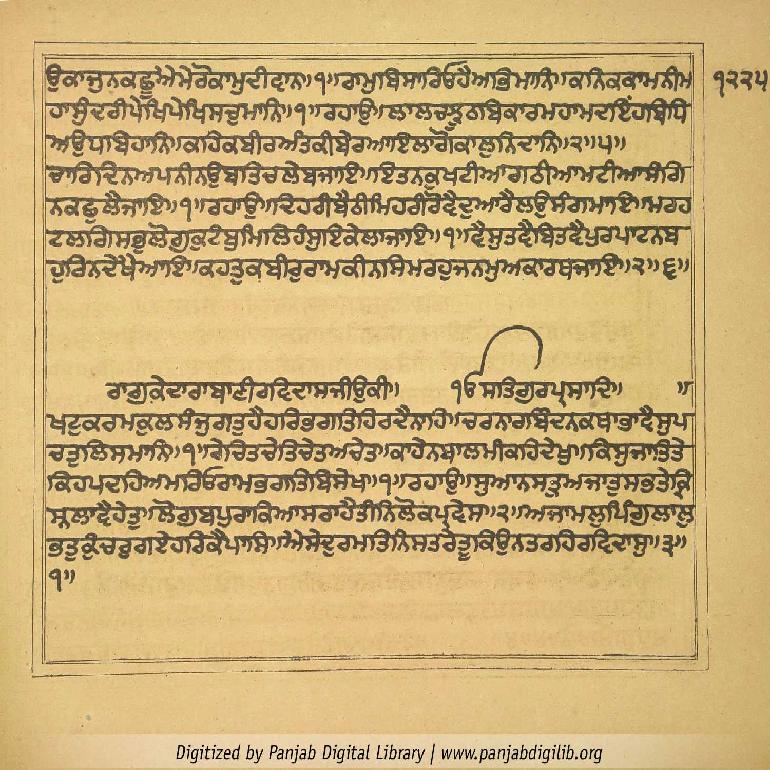 ਉਕਾਜੁਨਕਛੂਐਮੇਰੋਕਾਮੁਦੀਵਾਨ॥੧॥ਰਾਮੁਬਿਸਾਰਿਓਹੈਅਭਿਮਾਨਿ॥ਕਨਿਕਕਾਮਨੀਮ ੧੨੨੫
ਹਾਸੁੰਦਰੀਪੇਖਿਪੇਖਿਸਚੁਮਾਨਿ॥੧॥ਰਹਾਉ॥ਲਾਲਚਝੂਠਬਿਕਾਰਮਹਾਮਦਇਹਬਿਧਿ
ਅਉਧਬਿਹਾਨਿ॥ਕਹਿਕਬੀਰਅੰਤਕੀਬੇਰਆਇਲਾਗੋਕਾਲੁਨਿਦਾਨਿ॥੨॥੫॥
ਚਾਰਿਦਿਨਅਪਨੀਨਉਬਤਿਚਲੇਬਜਾਇ॥ਇਤਨਕੁਖਟੀਆਗਠੀਆਮਟੀਆਸੰਗਿ
ਨਕਛੁਲੈਜਾਇ॥੧॥ਰਹਾਉ॥ਦਿਹਰੀਬੈਠੀਮਿਹਰੀਰੋਵੈਦੁਆਰੈਲਉਸੰਗਮਾਇ॥ਮਰਹ
ਟਲਗਿਸਭੁਲੋਗੁਕੁਟੰਬੁਮਿਲਿਹੰਸੁਇਕੇਲਾਜਾਇ॥੧॥ਵੈਸੁਤਵੈਬਿਤਵੈਪੁਰਪਾਟਨਬ
ਹੁਰਿਨਦੇਖੈਆਇ॥ਕਹਤੁਕਬੀਰੁਰਾਮਕੀਨਸਿਮਰਹੁਜਨਮੁਅਕਾਰਥਜਾਇ॥੨॥੬॥
ਰਾਗੁਕੇਦਾਰਾਬਾਣੀਰਵਿਦਾਸਜੀਉਕੀ॥ ੴਸਤਿਗੁਰਪ੍ਰਸਾਦਿ॥ ॥
ਖਟੁਕਰਮਕੁਲਸੰਜੁਗਤੁਹੈਹਰਿਭਗਤਿਹਿਰਦੈਨਾਹਿ॥ਚਰਨਾਰਬਿੰਦਨਕਥਾਭਾਵੈਸੁਪ
ਚਤੁਲਿਸਮਾਨਿ॥੧॥ਰੇਚਿਤਚੇਤਿਚੇਤਅਚੇਤ॥ਕਾਹੇਨਬਾਲਮੀਕਹਿਦੇਖ॥ਕਿਸੁਜਾਤਿਤੇ
ਕਿਹਪਦਹਿਅਮਰਿਓਰਾਮਭਗਤਿਬਿਸੇਖ॥੧॥ਰਹਾਉ॥ਸੁਆਨਸਤ੍ਰੁਅਜਾਤੁਸਭਤੇਕ੍ਰਿ
ਸ੍ਨਲਾਵੈਹੇਤੁ॥ਲੋਗੁਬਪੁਰਾਕਿਆਸਰਾਹੈਤੀਨਿਲੋਕਪ੍ਰਵੇਸ॥੨॥ਅਜਾਮਲੁਪਿੰਗੁਲਾਲੁ
ਭਤੁਕੁੰਚਰੁਗਏਹਰਿਕੈਪਾਸਿ॥ਐਸੇਦੁਰਮਤਿਨਿਸਤਰੇਤੂਕਿਉਨਤਰਹਿਰਵਿਦਾਸ॥੩॥
੧॥
Digitized by Panjab Digital Library | www.panjabdigilib.org